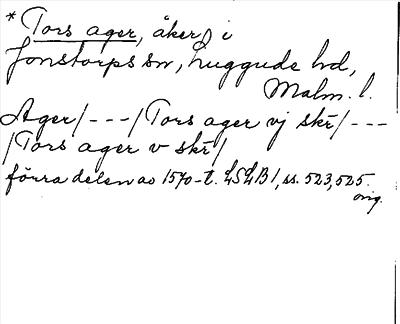 * Tors ager, åker, i
Jonstorps sn, Luggude hd,
Malm. l.
Ager/---/Tors ager vj skr/---
/Tors ager v skr/
förra delen av 1570-t. LSLB1, ss. 523, 525.
orig.